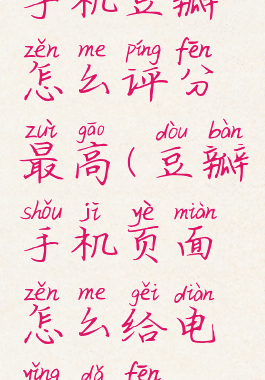 手机豆瓣
zěn me píng fēn
怎么评分
zuì gāo dòu bàn
最高(豆瓣
shǒu jī yè miàn
手机页面
zěn me gěi diàn
怎么给电
yǐng dǎ fēn